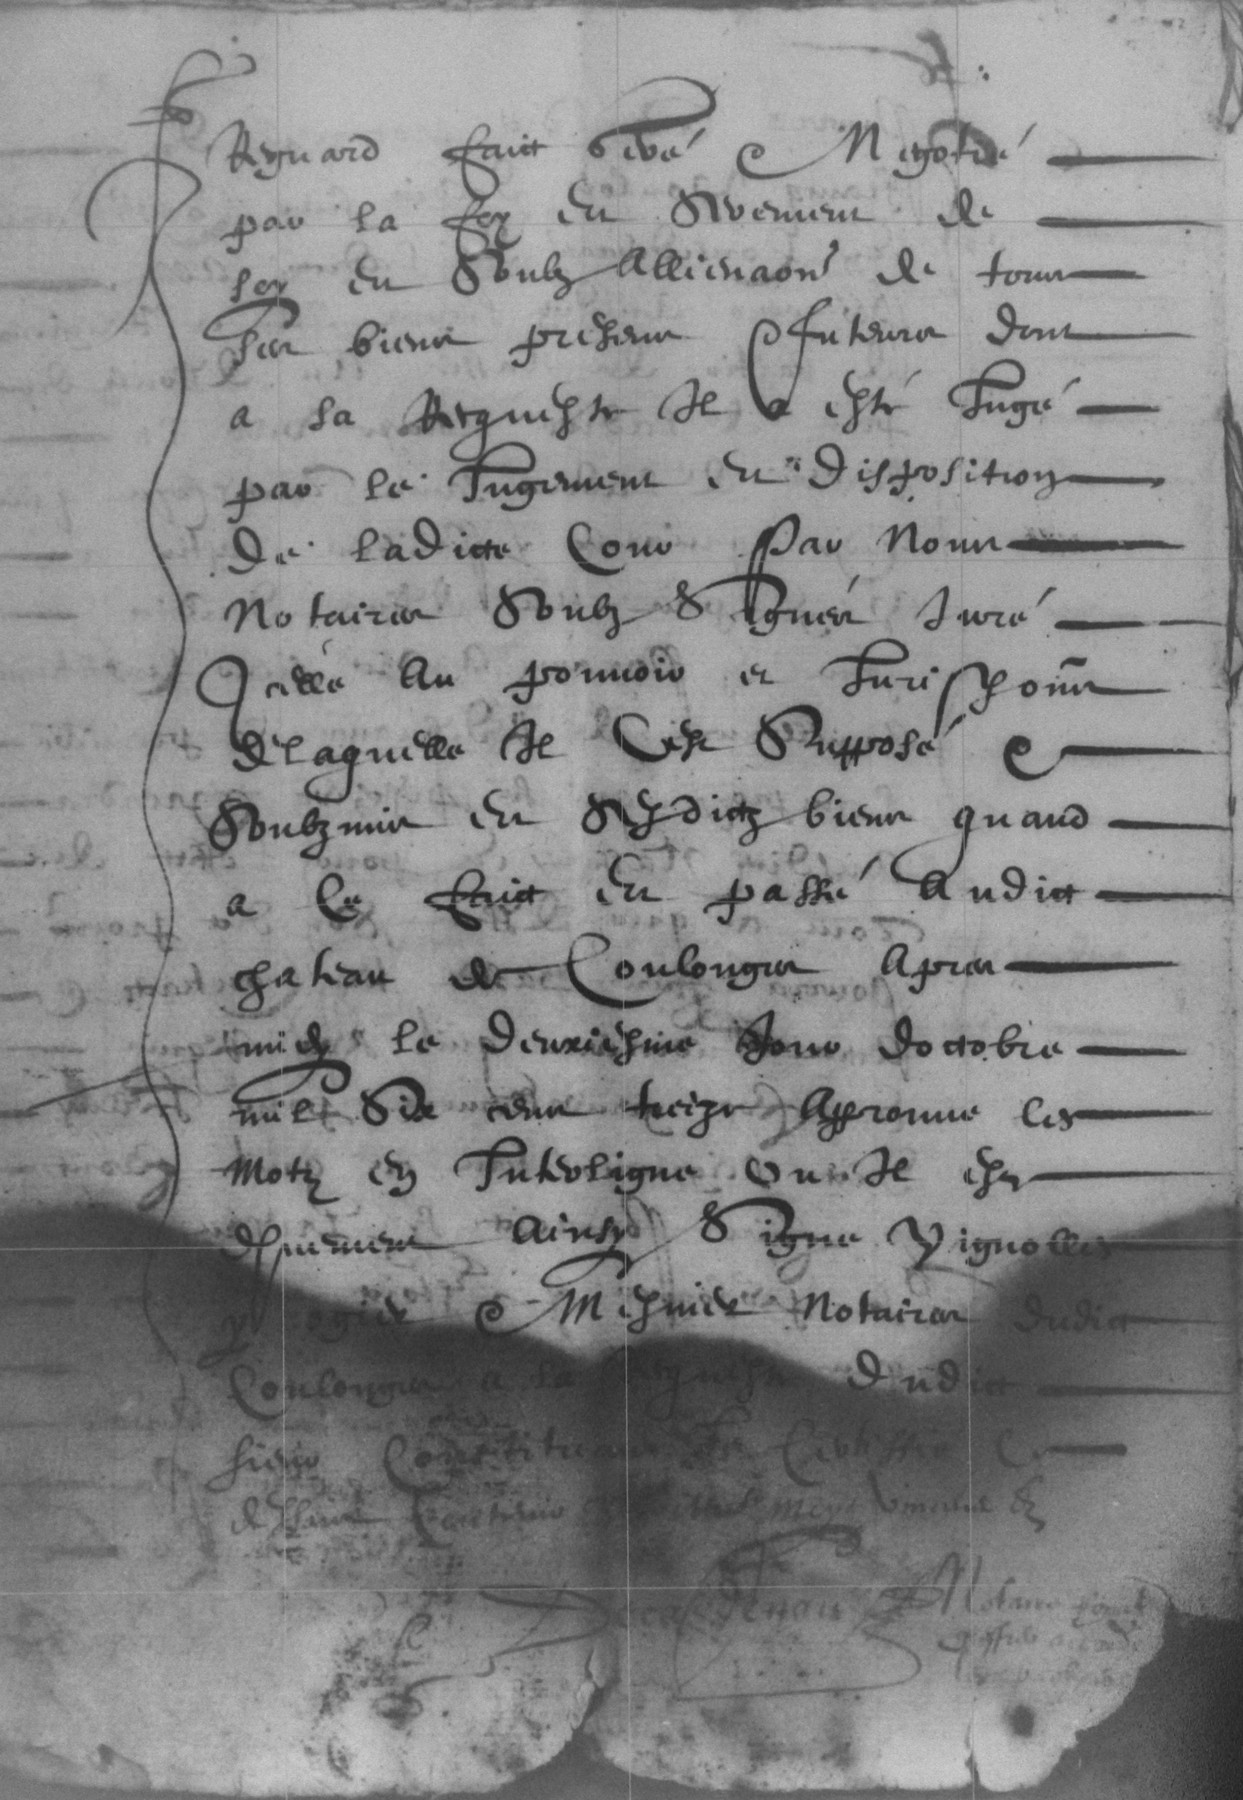 Regnard faict Geré et Negotié
par la foy et Serement de
soy et Soubz Allienaon de tous
ses biens presens et futeurs dont
a sa Requeste Il a esté Jugé
par le Jugement et disposition
de ladicte Cour Par Nous
Notaires Soubz Signés Juré
d'icelle Au pouuoir et Jurisdiction
de laquelle Il C'est Supposé et
Soubzmis et Sesdictz biens quand
a Ce faict et passé Audict
chateau de Coulonges Apres
midy le deuxiesme Jour doctobre
mil Six cens treize Approuue les
Motz en Interligne ou Il est
Ainsy Signe Vignolles
et Mesnier Notaires dudict
Coulonges a la Requeste Dudict
sieur
Notaire